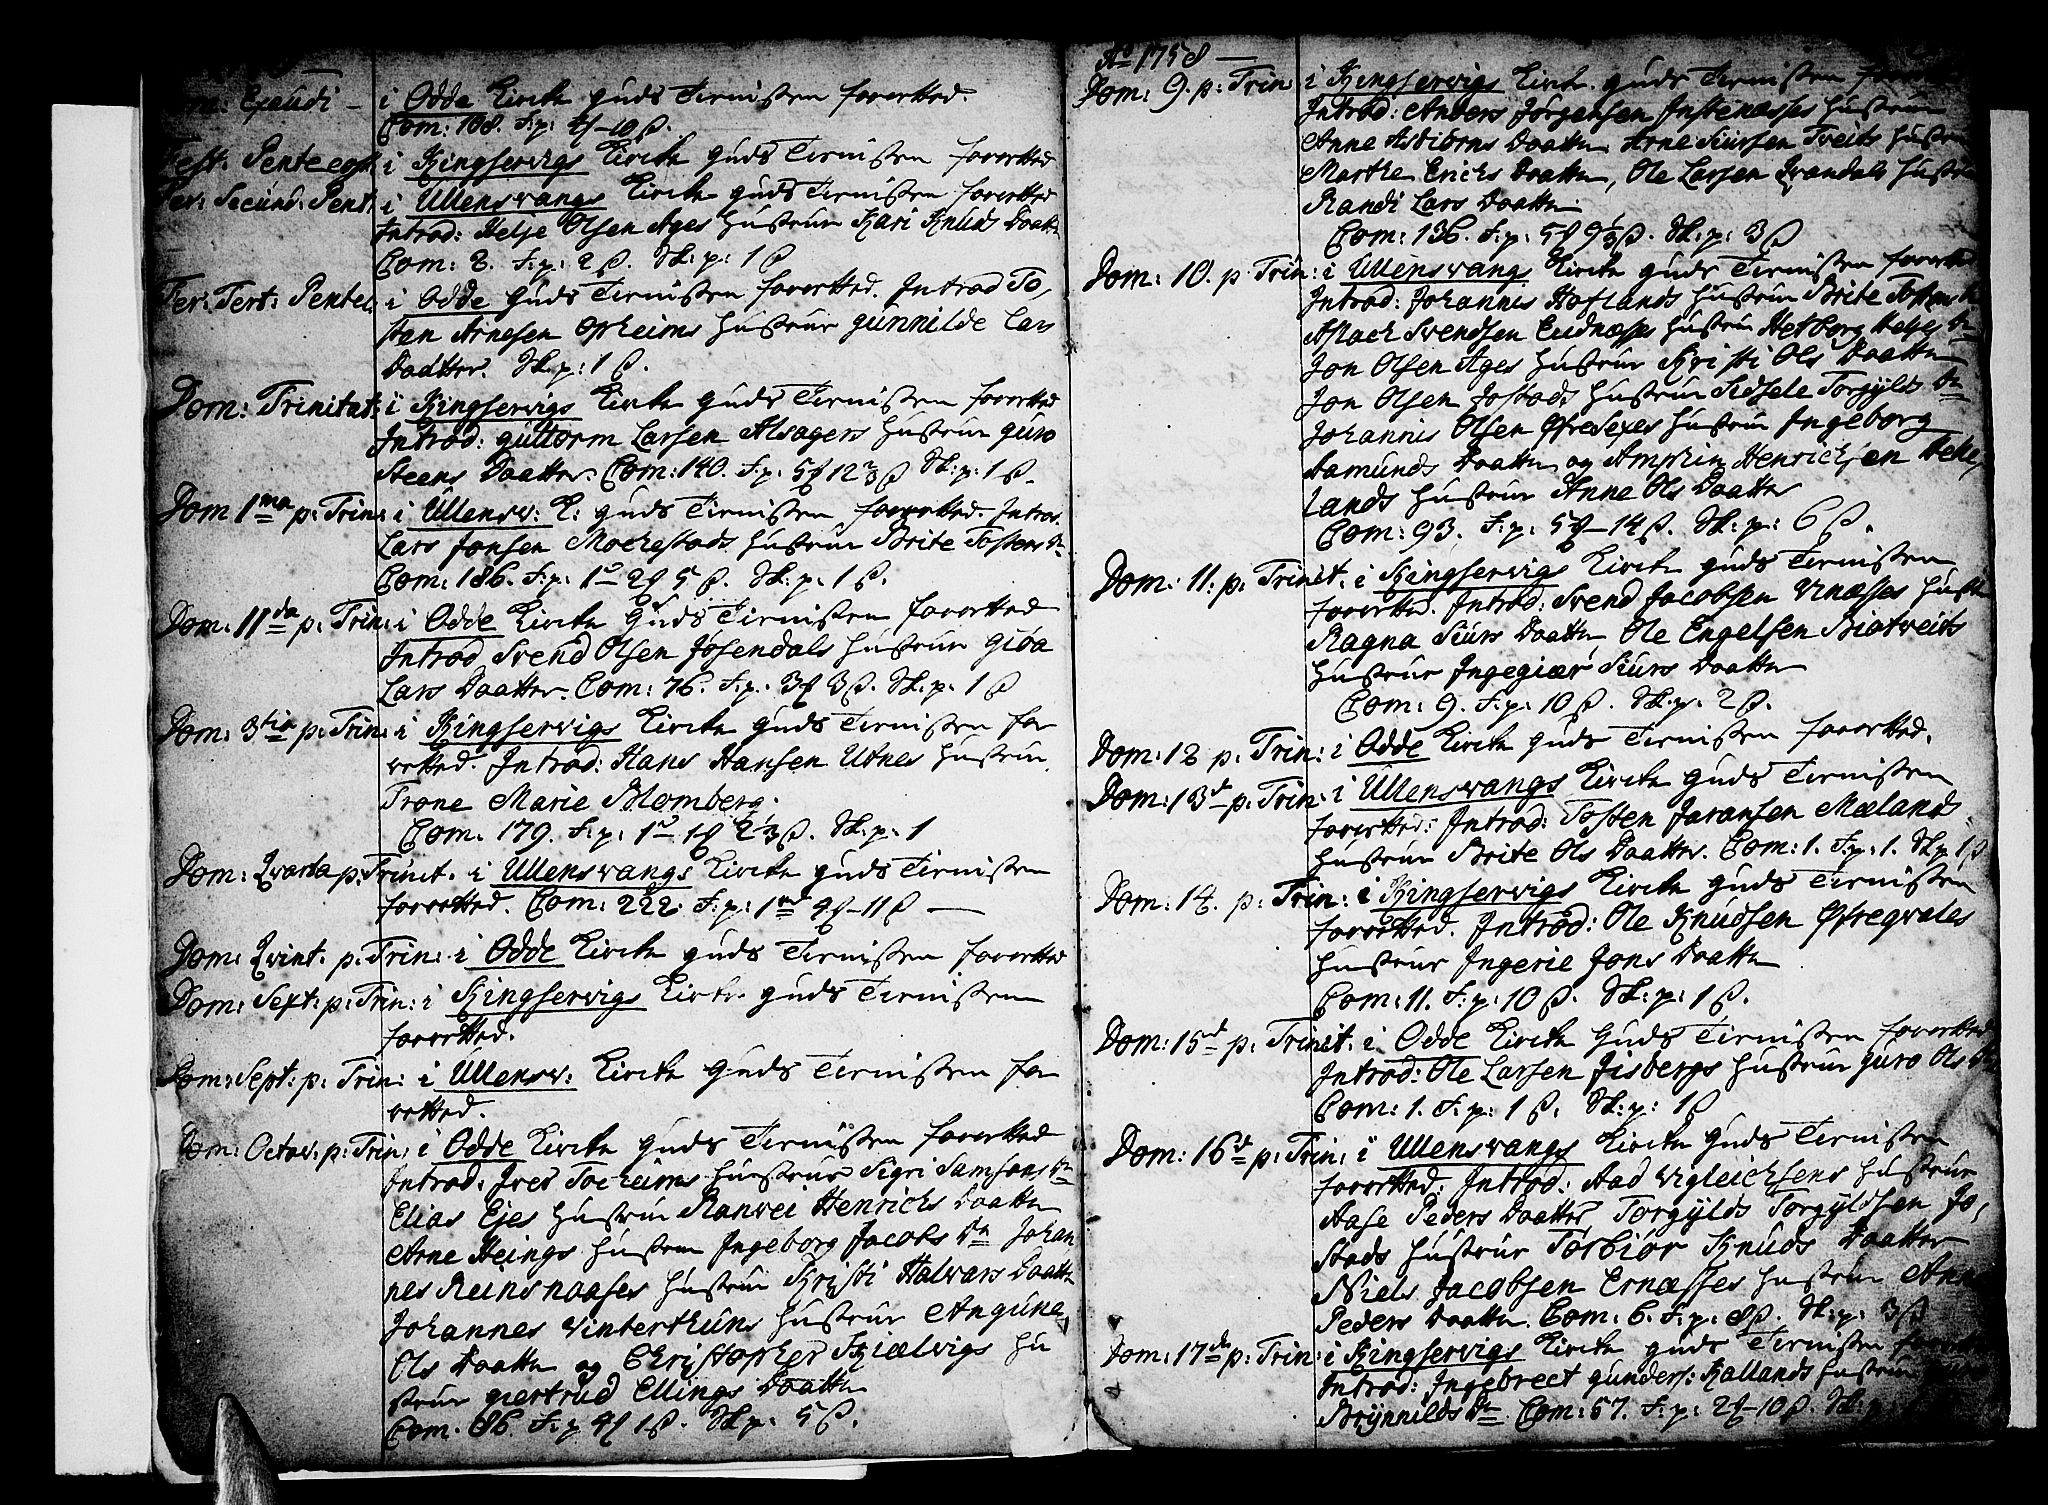 Exaudi – i Odde Kircke Guds Tienisten forretted.
Com: 108. F:p: 4 – 10 ß.
Fest: Pentecost: i Kingservigs Kircke Guds Tienisten forretted
Fer: Secund: Pent. i Ullensvangs Kircke Guds Tienisten forretted
Introd: Helje Olsen Ages Hustrue Kari Knuds Daatter
Com: 2. F:p: 2 ß. Sk:p: 1 ß
Fer: Tert: Pentec. i Odde Guds Tienisten forretted. Introd To,
sten Arnesen Opheims Hustrue Gunnilde Lars
Daatter. Sk:p: 1 ß.
Dom: Trinitat: i Kingservigs Kircke Guds Tienisten forretted
Introd: Guttorm Larsen Alsagers Hustrue Guro
Steens Daatter. Com: 140. F:p: 5 12 2/3 ß Sk:p: 1 ß.
Dom 1ma p: Trin: i Ullensv: K: Guds Tienisten forretted. Introd.
Lars Jonsen Mockestads Hustrue Brite Tostens Dr
Com: 186. F:p: 1 2 5 ß. Sk:p: 1 ß.
Dom: 11da p: Trin: i Odde Kircke Guds Tienisten forretted
Introd Svend Olsen Jøsendals Hustrue Giøa
Lars Daatter. Com: 76. F:p: 3 3 ß. Sk:p: 1 ß
Dom: 3tia p: Trin: i Kingservigs Kircke Guds Tienisten for
rettet. Introd: Hans Hansen Utnes Hustrue
Trone Marie Blomberg.
Com: 179. F:p: 1 1 2 1/3 ß. Sk:p: 1
Dom: Qvarta p: Trinit. i Ullensvangs Kircke Guds Tienisten
forretted. Com: 222. F:p: 1 4 – 11 ß —
Dom: Qvint. p: Trin: i Odde Kircke Guds Tienisten forretted
Dom: Sext: p: Trin: i Kingservigs Kircke Guds Tienisten
forretted.
Dom: Sept: p: Trin: i Ullensv: Kircke Guds Tienisten for
retted.
Dom: Octav: p: Trin: i Odde Kircke Guds Tienisten forretted
Introd: Iver Tocheims Hustrue Sigri Samsons Dr
Elias Ejes Hustrue Ranvei Henrichs Daatter
Arne Heings Hustrue Ingeborg Jacobs Dr Johan
nes Reinsnaases Hustrue Kristi Halvars Daatter
Johannes Vinterthuns Hustrue Angune
Ols Daatter og Christopher Skielvigs Hu
strue Giertrud Ellings Daatter
Com. 86. F:p 4 1 ß. Sk:p: 5 ß.
Ao 1758 —
Dom: 9. p: Trin: i Kingservigs Kircke Guds Tienisten
Introd: Anders Jørgensen Instenæsses Hustrue
Anne Asbiørns Daatter Arne Siursen Tveits Hustrue
Marthe Erichs Daatter, Ole Larsen Qvandals Hustrue
Randi Lars Daatter.
Com: 136. F:p: 5 9 1/3 ß. Sk:p: 3 ß
Dom: 10. p Trin: i Ullensvangs Kircke Guds Tienisten forrettet
Introd: Johannis Hoflands Hustrue Brite Tostens Dr
Aslach Svendsen Eidnæsses Hustrue Herborg Heljes Dr
Jon Olsen Ages Hustrue Kristi Ols Daatter
Jon Olsen Jostads Hustrue Sidsele Torgylds Dr
Johannis Olsen Øfresexes Hustrue Ingeborg
Aamunds Daatter og Amphin Henrichsen Helle,
lands Hustrue Anne Ols Daatter
Com: 93. F:p: 5 – 14 ß. Sk:p: 6 ß.
Dom: 11. p: Trinit. i Kingservigs Kircke Guds Tienisten
forrettet. Introd: Svend Jacobsen Vinæsses Hustrue
Ragna Siurs Daatter, Ole Engelsen Biotveits
Hustrue Ingegiær Siurs Daatter
Com: 9. F:p: 10 ß. Sk:p: 2 ß.
Dom: 12 p. Trin: i Odde Kircke Guds Tienisten forrettet.
Dom: 13d p: Trin: i Ullensvangs Kircke Guds Tienisten
forrettet: Introd: Tosten Jaransen Mælands
Hustrue Brite Ols Daatter. Com: 1. F:p: 1. Sk:p 1 ß
Dom: 14. p: Trin: i Kingservigs Kircke Guds Tienisten
forrettet. Introd: Ole Knudsen Øfregvales
Hustrue Ingerie Jons Daatter
Com: 11. F:p: 10 ß. Sk:p: 1 ß.
Dom: 15d p: Trinit. i Odde Kircke Guds Tienisten forrettet
Introd: Ole Larsen Jisbergs Hustrue Guro Ols Dr
Com: 1. F:p: 1 ß. Sk:p: 1 ß
Dom: 16d p: Trin: i Ullensvangs Kircke Guds Tienisten
forrettet. Introd: Aad Vigleichsens Hustrue
Aase Peders Daatter, Torgylds Torgyldsen Jo,
stads Hustrue Torbiør Knuds Daatter
Niels Jacobsen Ernæsses Hustrue Anna
Peders Daatter. Com: 6. F:p: 8 ß. Sk:p: 3 ß
Dom: 17de p: Trin: i Kingservigs Kircke Guds Tienisten
Introd: Ingebrect Gunders: Kallands Hustrue
Brynnilds Dr Com: 57. F:p: 2 – 10 ß. Sk:p: